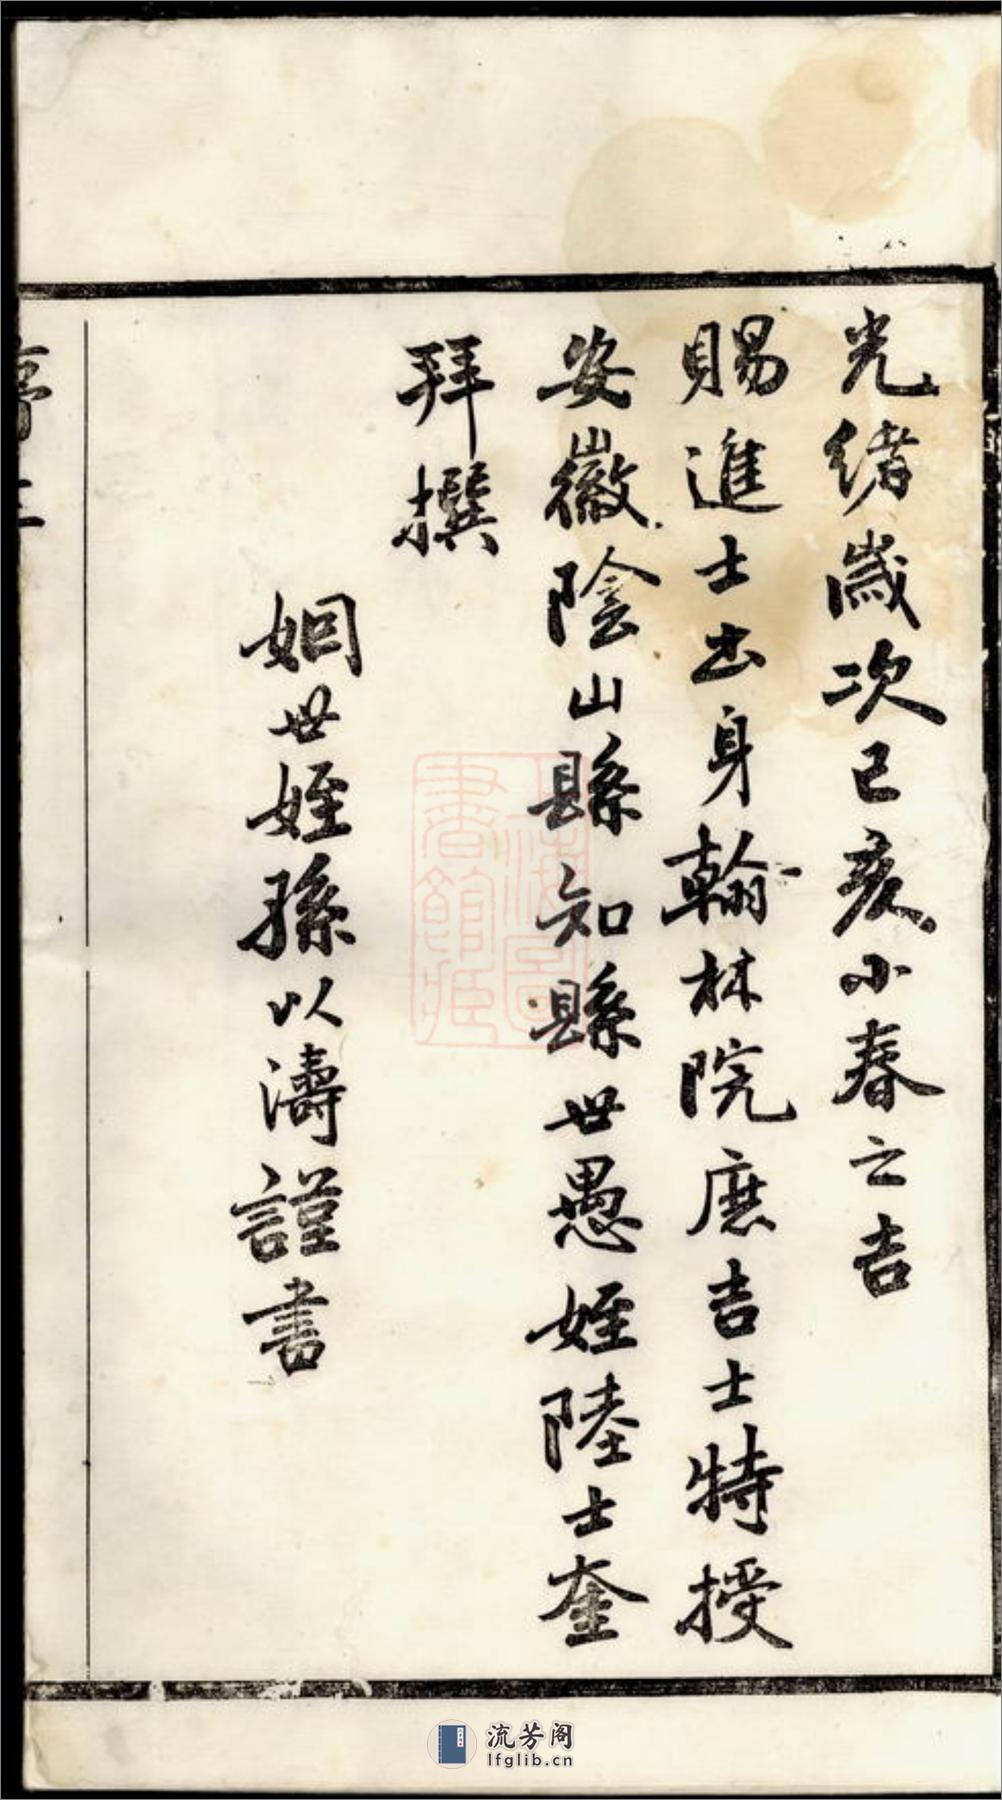 光緒歲次已亥小春之吉
賜進士出身翰林院庶吉士特授
安徽陰山縣知縣世愚姪陸士奎
拜撰
姻世姪孫以濤謹書
流芳阁
lfglib.cn